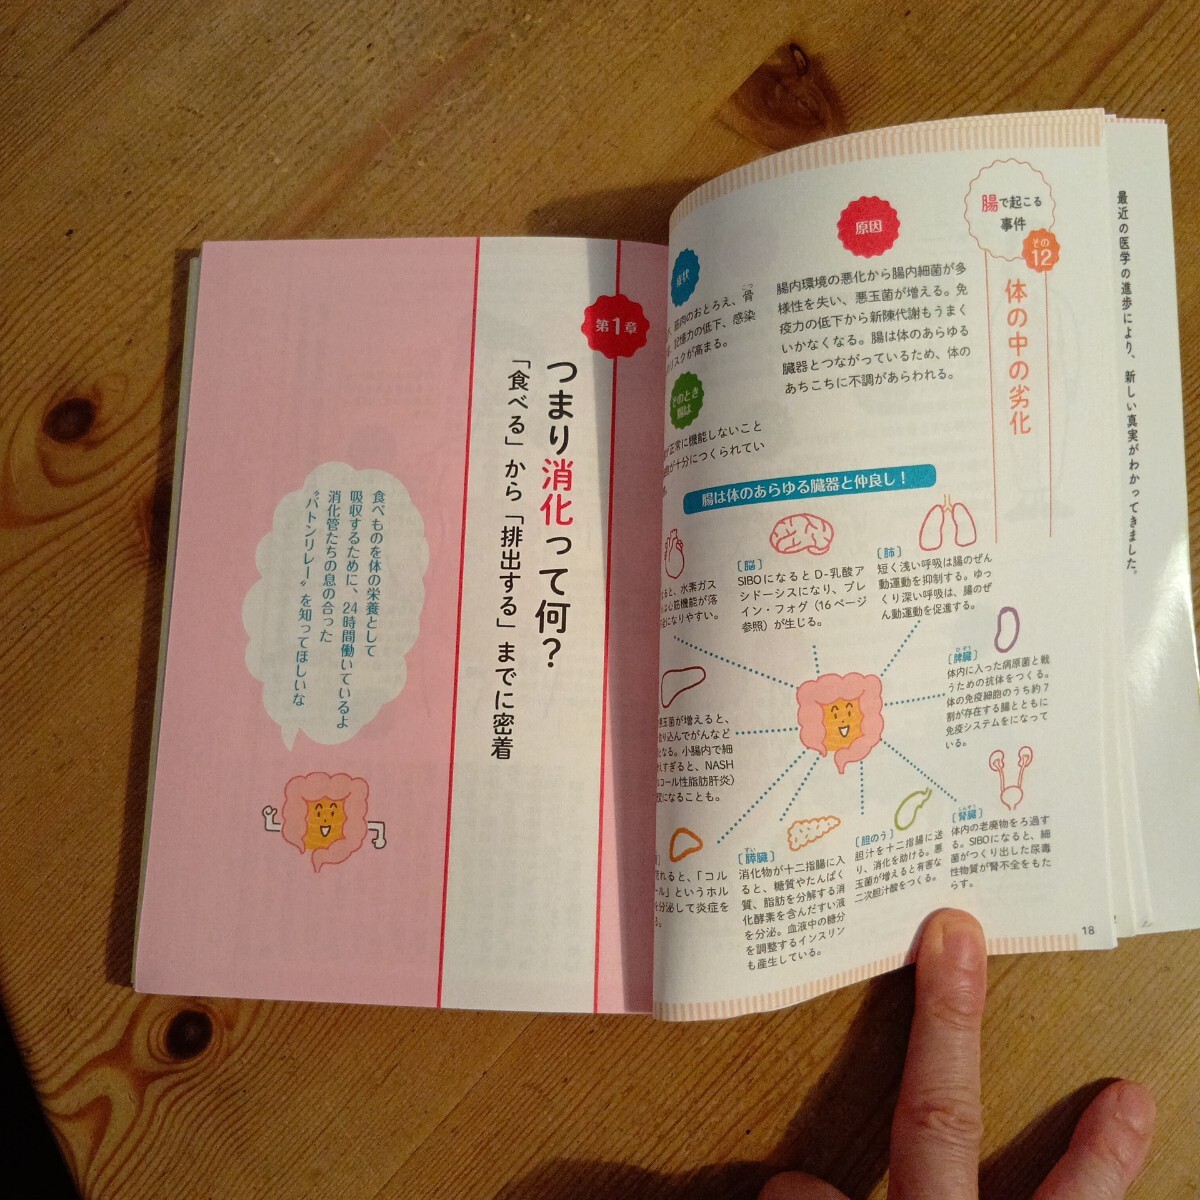 最近の医学の進歩により、新しい真実がわかってきました。
腸で起こる
事件
その
12
体の中の劣化
原因
腸内環境の悪化から腸内細菌が多
様性を失い、悪玉菌が増える。免
疫力の低下から新陳代謝もうまく
いかなくなる。腸は体のあらゆる
臓器とつながっているため、体の
あちこちに不調があらわれる。
症状
筋肉のおとろえ、骨
記憶力の低下、感染
リスクが高まる。
そのとき
腸は
正常に機能しないこと
が十分につくられてい
腸は体のあらゆる臓器と仲良し!
水素ガス
心筋機能が落
なりやすい。
〔脳〕
SIBOになるとD-乳酸ア
シドーシスになり、ブレ
イン・フォグ(16ページ
参照)が生じる。
〔肺〕
短く浅い呼吸は腸のぜん
動運動を抑制する。ゆっ
くり深い呼吸は、腸のぜ
ん動運動を促進する。
〔脾臓〕
ひぞう
体内に入った病原菌と戦
うための抗体をつくる。
体の免疫細胞のうち約7
割が存在する腸とともに
免疫システムをになって
いる。
玉菌が増えると、
り込んでがんなど
なる。小腸内で細
すぎると、NASH
コール性脂肪肝炎)
になることも。
〔腎臓〕
じんぞう
体内の老廃物をろ過す
る。SIBOになると、細
菌がつくり出した尿毒
性物質が腎不全をもた
らす。
〔胆のう〕
胆汁を十二指腸に送
り、消化を助ける。悪
玉菌が増えると有害な
二次胆汁酸をつくる。
〔膵臓〕
すい
消化物が十二指腸に入
ると、糖質やたんぱく
質、脂肪を分解する消
化酵素を含んだすい液
を分泌。血液中の糖分
を調整するインスリン
も産生している。
れると、「コル
ール」というホル
分泌して炎症を
る。
18
第1章
つまり消化って何?
「食べる」から「排出する」までに密着
食べものを体の栄養として
吸収するために、24時間働いているよ
消化管たちの息の合った
“バトンリレー”を知ってほしいな